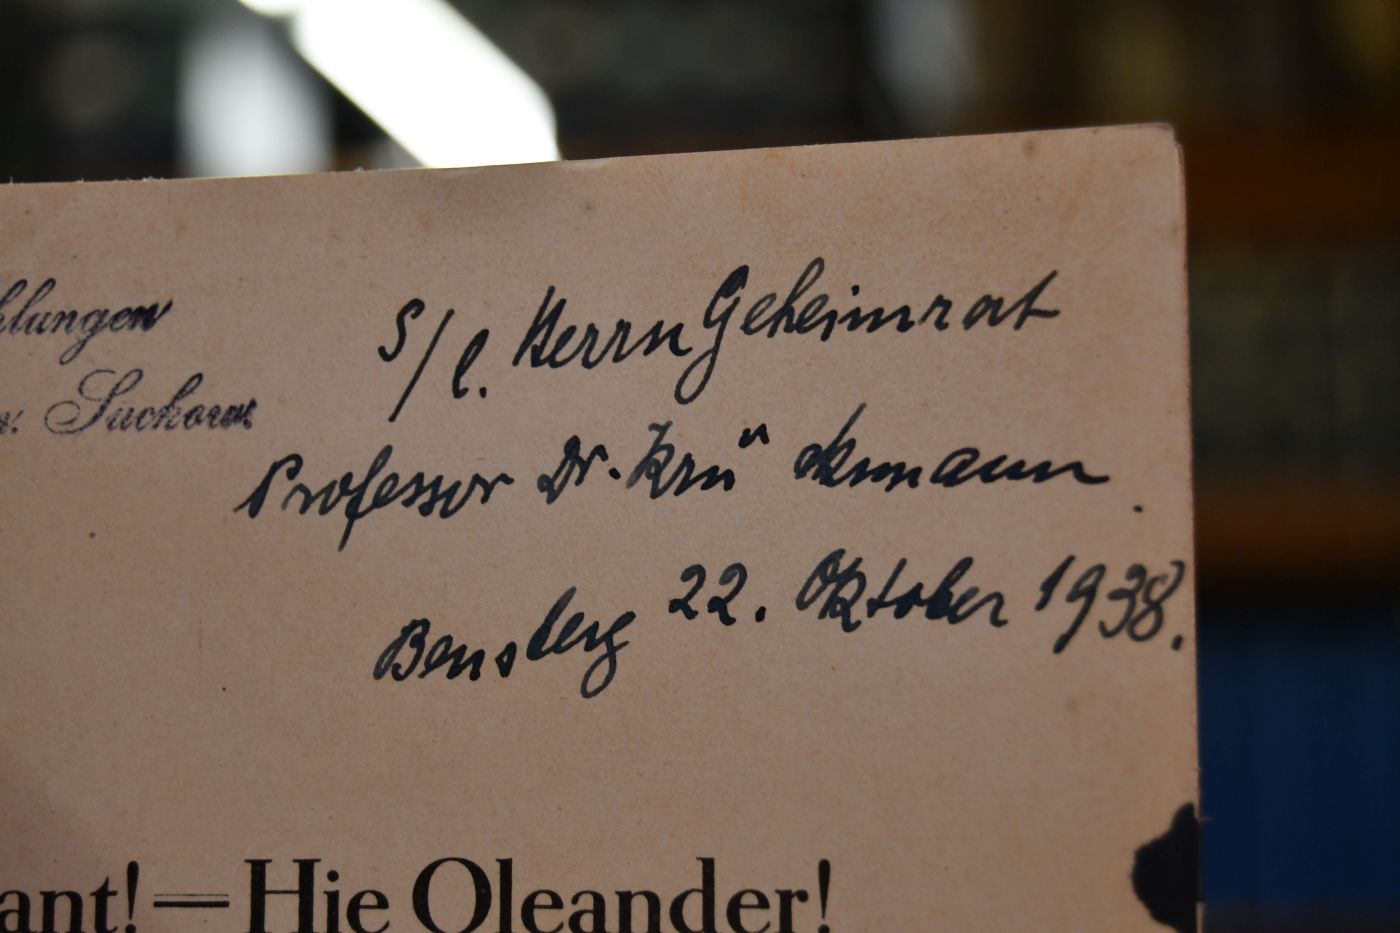 hlungen
v. Suchow.
S/l. Herrn Geheimrat
Professor Dr. Krückmann.
Bensberg 22. Oktober 1938.
ant! = Hie Oleander!